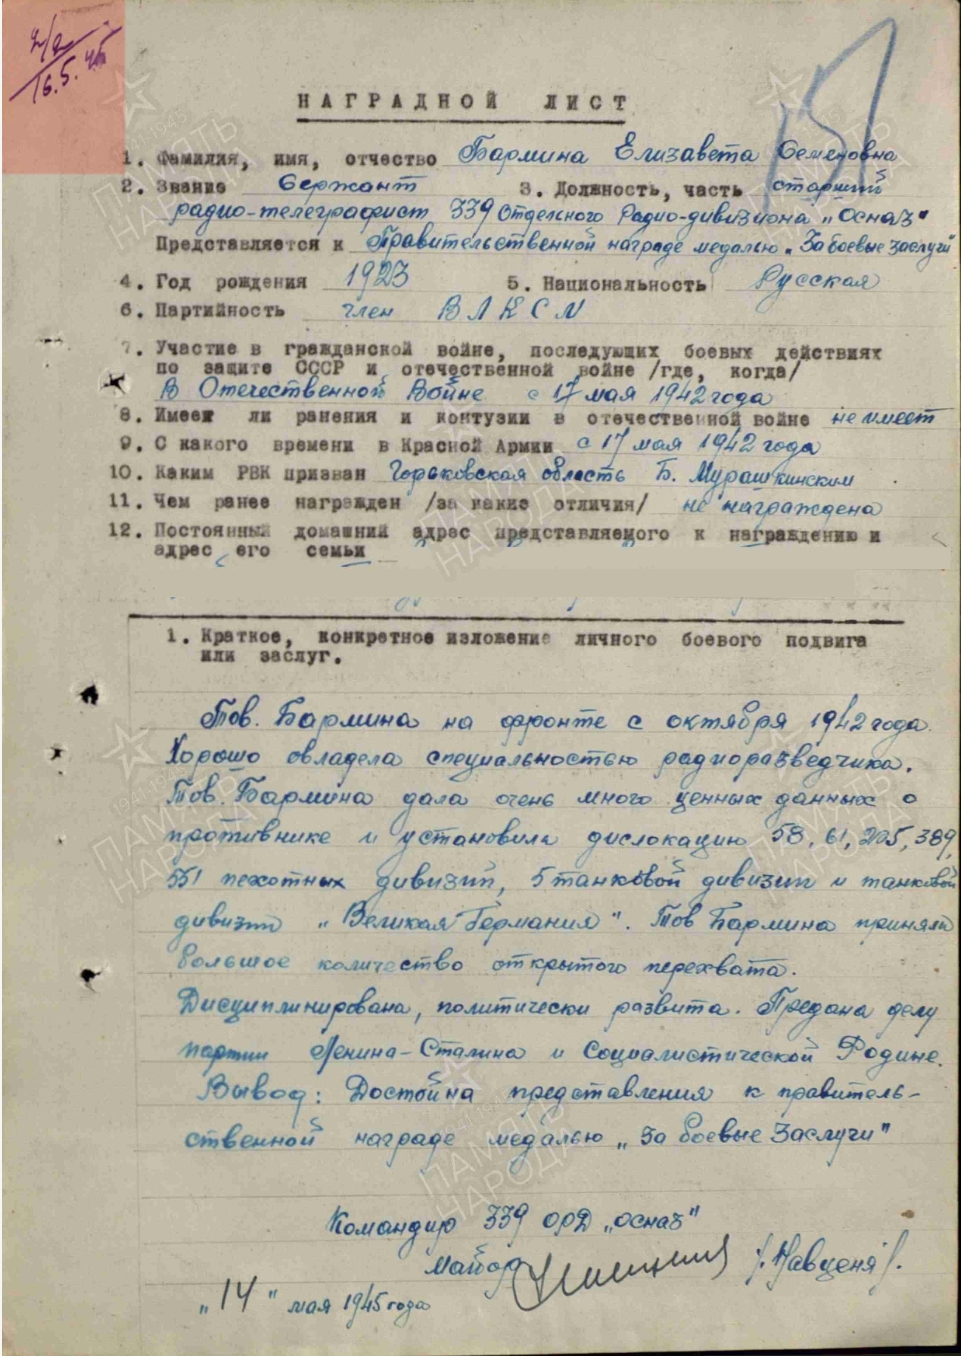 2/2
16.5.45
НАГРАДНОЙ ЛИСТ
1. Фамилия, имя, отчество Бармина Елизавета Семеновна
2. Звание Сержант 3. Должность, часть старший
радио-телеграфист 339 Отдельного Радио-дивизиона "Осназ"
Представляется к Правительственной награде медалью "За боевые заслуги"
4. Год рождения 1923 5. Национальность Русская
6. Партийность член ВЛКСМ
7. Участие в гражданской войне, последующих боевых действиях
по защите СССР и отечественной войне /где, когда/
В Отечественной Войне с 17 мая 1942 года
8. Имеет ли ранения и контузии в отечественной войне не имеет
9. С какого времени в Красной Армии с 17 мая 1942 года
10. Каким РВК призван Горьковская область Б. Мурашкинским
11. Чем ранее награжден /за какие отличия/ не награждена
12. Постоянный домашний адрес представляемого к награждению и
адрес его семьи
1. Краткое, конкретное изложение личного боевого подвига
или заслуг.
Тов. Бармина на фронте с октября 1942 года.
Хорошо овладела специальностью радиоразведчика.
Тов. Бармина дала очень много ценных данных о
противнике и установила дислокацию 58, 61, 205, 389,
551 пехотных дивизий, 5 танковой дивизии и танковой
дивизии "Великая Германия". Тов Бармина приняла
большое количество открытого перехвата.
Дисциплинирована, политически развита. Предана делу
партии Ленина-Сталина и Социалистической Родине.
Вывод: Достойна представления к правитель-
ственной награде медалью "За боевые заслуги"
Командир 339 ОРД "осназ"
майор /Навценя/.
"14" мая 1945 года
ПАМЯТЬ
НАРОДА